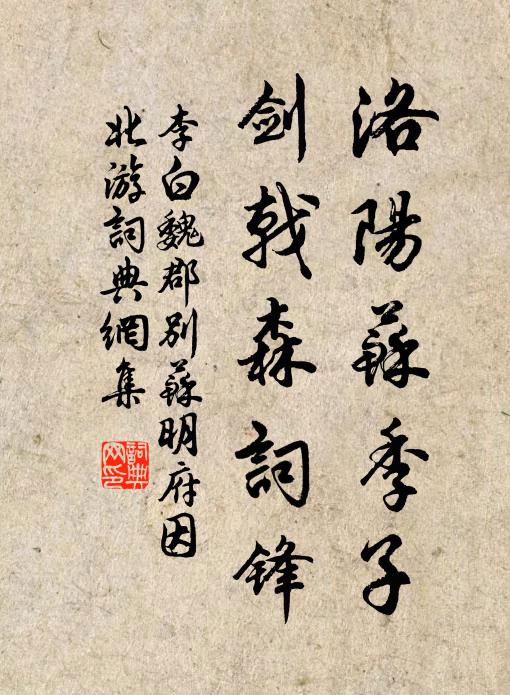 洛陽蘇季子
劍戟森詞鋒
李白魏郡別蘇明府因
北游詞典網集
詞典網印